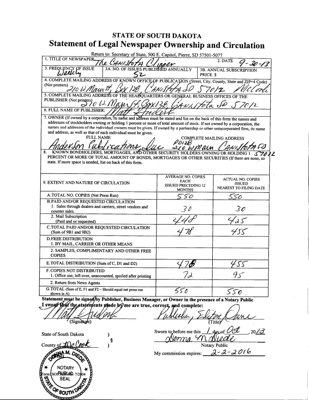 STATE OF SOUTH DAKOTA
Statement of Legal Newspaper Ownership and Circulation
Return to: Secretary of State, 500 E. Capitol, Pierre, SD 57501-5077
1. TITLE OF NEWSPAPER The Canistota Clipper
2. DATE
3. FREQUENCY OF ISSUE Weekly
3A. NO. OF ISSUES PUBLISHED ANNUALLY 52
3B. ANNUAL SUBSCRIPTION PRICE $
4. COMPLETE MAILING ADDRESS OF KNOWN OFFICE OF PUBLICATION (Street, City, County, State and ZIP+4 Code)
(Not printers)
5. COMPLETE MAILING ADDRESS OF THE HEADQUARTERS OR GENERAL BUSINESS OFFICES OF THE
PUBLISHER (Not printer)
6. FULL NAME OF PUBLISHER:
7. OWNER (If owned by a corporation, its name and address must be stated and list on the back of this form the names and
addresses of stockholders owning or holding 1 percent or more of total amount of stock. If not owned by a corporation, the
names and addresses of the individual owners must be given. If owned by a partnership or other unincorporated firm, its name
and address, as well as that of each individual must be given.
FULL NAME
COMPLETE MAILING ADDRESS
Anderson Publications Inc
8. KNOWN BONDHOLDERS, MORTGAGEES, AND OTHER SECURITY HOLDERS OWNING OR HOLDING 1
PERCENT OR MORE OF TOTAL AMOUNT OF BONDS, MORTGAGES OR OTHER SECURITIES (If there are none, so
state. If more space is needed, list on back of this form.
9. EXTENT AND NATURE OF CIRCULATION
AVERAGE NO. COPIES EACH ISSUED PRECEDING 12 MONTHS
ACTUAL NO. COPIES ISSUED NEAREST TO FILING DATE
A. TOTAL NO. COPIES (Net Press Run) 550 550
B. PAID AND/OR REQUESTED CIRCULATION
1. Sales through dealers and carriers, street vendors and
counter sales. 30 30
2. Mail Subscription
(Paid and or requested) 448 425
C. TOTAL PAID AND/OR REQUESTED CIRCULATION
(Sum of 9B1 and 9B2) 478 455
D. FREE DISTRIBUTION
1. BY MAIL, CARRIER OR OTHER MEANS
2. SAMPLES, COMPLIMENTARY AND OTHER FREE
COPIES
E. TOTAL DISTRIBUTION (Sum of C, D1 and D2) 478 455
F. COPIES NOT DISTRIBUTED
1. Office use, left over, unaccounted, spoiled after printing 72 95
2. Return from News Agents
G. TOTAL (Sum of E, F1 and F2 - Should equal net press run
shown in A) 550 550
Statement must be signed by Publisher, Business Manager, or Owner in the presence of a Notary Public
I swear that the statements made by me are true, correct, and complete:
(Signature)
(Title)
State of South Dakota )
) §
County of McCook )
Sworn to before me this 1 day of Oct
Notary Public
My commission expires: 2-2-2016
NOTARY
PUBLIC
SEAL
SOUTH DAKOTA